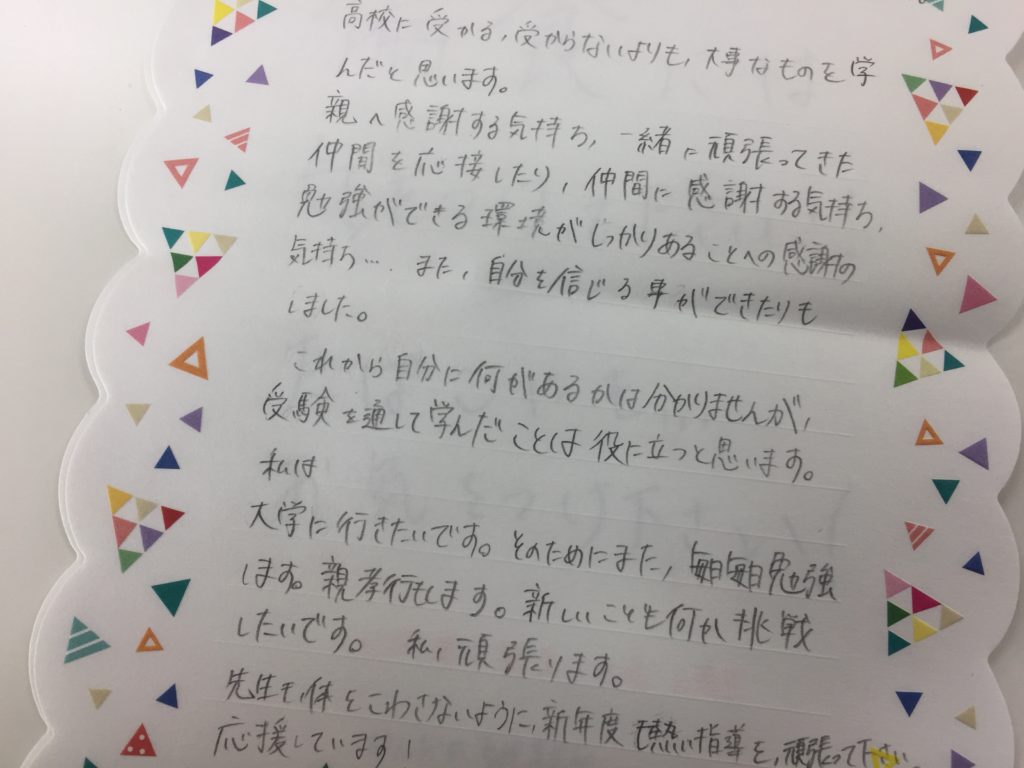 高校に受かる，受からないよりも，大事なものを学
んだと思います。
親へ感謝する気持ち，一緒に頑張ってきた
仲間を応接したり，仲間に感謝する気持ち，
勉強ができる環境がしっかりあることへの感謝の
気持ち…．また，自分を信じる事ができたりも
しました。
これから自分に何があるかは分かりませんが，
受験を通して学んだことは役に立つと思います。
私は
大学に行きたいです。そのためにまた，毎日毎日勉強
します。親孝行もします。新しいことも何か挑戦
したいです。 私，頑張ります。
先生も体をこわさないように，新年度も熱い指導を，頑張って下さい
応援しています！